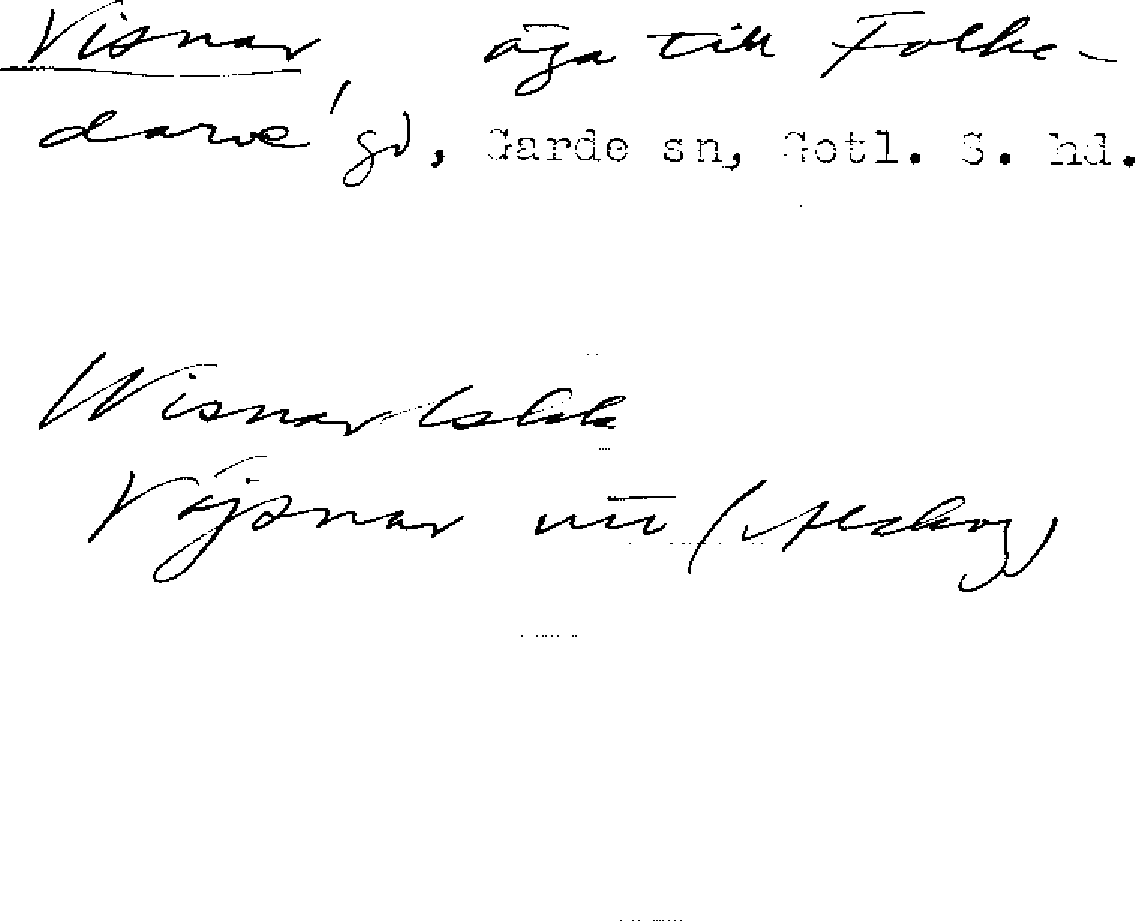 Visnar, äga till Folke-
darve gd, Garde sn, Gotl. S. hd.
Wisnar lskk
Väjsnar (Alskog)